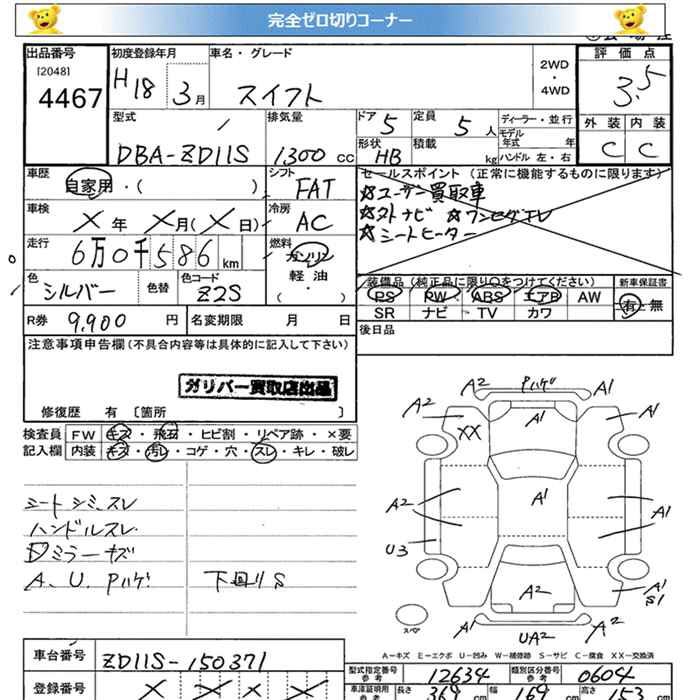 完全ゼロ切りコーナー
出品番号
[2048]
4467
初度登録年月
H18 3月
車名・グレード
スイフト
2WD
・
4WD
評価点
3.5
外装 内装
C C
型式
DBA-ZD11S
排気量
1300 cc
ドア 5
形状 HB
定員 5 人
積載 kg
ディーラー・並行
モデル年式 年
ハンドル 左・右
車歴
自家用・( )
シフト
FAT
セールスポイント(正常に機能するものに限ります)
☆ユーザー買取車
☆ストナビ ☆ワンセグTV
☆シートヒーター
車検
X 年 X 月( X 日)
冷房
AC
走行
6万0千586 km
燃料
ガソリン
軽油
( ・ )
色
シルバー
色替
色コード
Z2S
装備品(純正品に限り○をつけてください)
PS PW ABS エアB AW
SR ナビ TV カワ
新車保証書
有・無
R券 9,900 円
名変期限 月 日
後日品
注意事項申告欄(不具合内容等は具体的に記入して下さい)
ガリバー買取店出品
修復歴 有〔箇所 〕
検査員
記入欄
FW キズ・飛石・ヒビ割・リペア跡・×要
内装 キズ・汚レ・コゲ・穴・スレ・キレ・破レ
シートシミ、スレ
ハンドルスレ
Dミラーキズ
A、U、Pハゲ 下回りS
A2 A2 Pハゲ A1 A1
XX A1
A2 A1 A1
U3
A2 A1 S1
A1 UA2 A2
スペア
A−キズ E−エクボ U−凹み W−補修跡 S−サビ C−腐食 XX−交換済
車台番号
ZD11S-150371
登録番号
X X X X
型式指定番号 参考 12634
類別区分番号 参考 0604
車庫証明用 参考 長さ 369 cm 幅 169 cm 高さ 153 cm